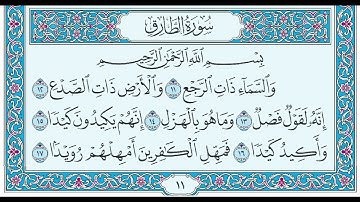 سُورَةُ الطَّارِقِ
بِسْمِ اللَّهِ الرَّحْمَٰنِ الرَّحِيمِ
وَالسَّمَاءِ ذَاتِ الرَّجْعِ ۝١١ وَالْأَرْضِ ذَاتِ الصَّدْعِ ۝١٢
إِنَّهُ لَقَوْلٌ فَصْلٌ ۝١٣ وَمَا هُوَ بِالْهَزْلِ ۝١٤ إِنَّهُمْ يَكِيدُونَ كَيْدًا ۝١٥
وَأَكِيدُ كَيْدًا ۝١٦ فَمَهِّلِ الْكَٰفِرِينَ أَمْهِلْهُمْ رُوَيْدًا ۝١٧
١١